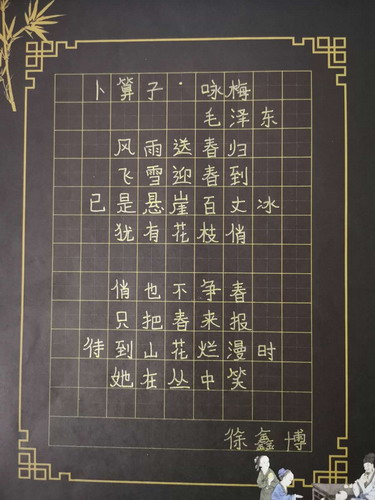 卜算子·咏梅
毛泽东
风雨送春归
飞雪迎春到
已是悬崖百丈冰
犹有花枝俏
俏也不争春
只把春来报
待到山花烂漫时
她在丛中笑
徐鑫博